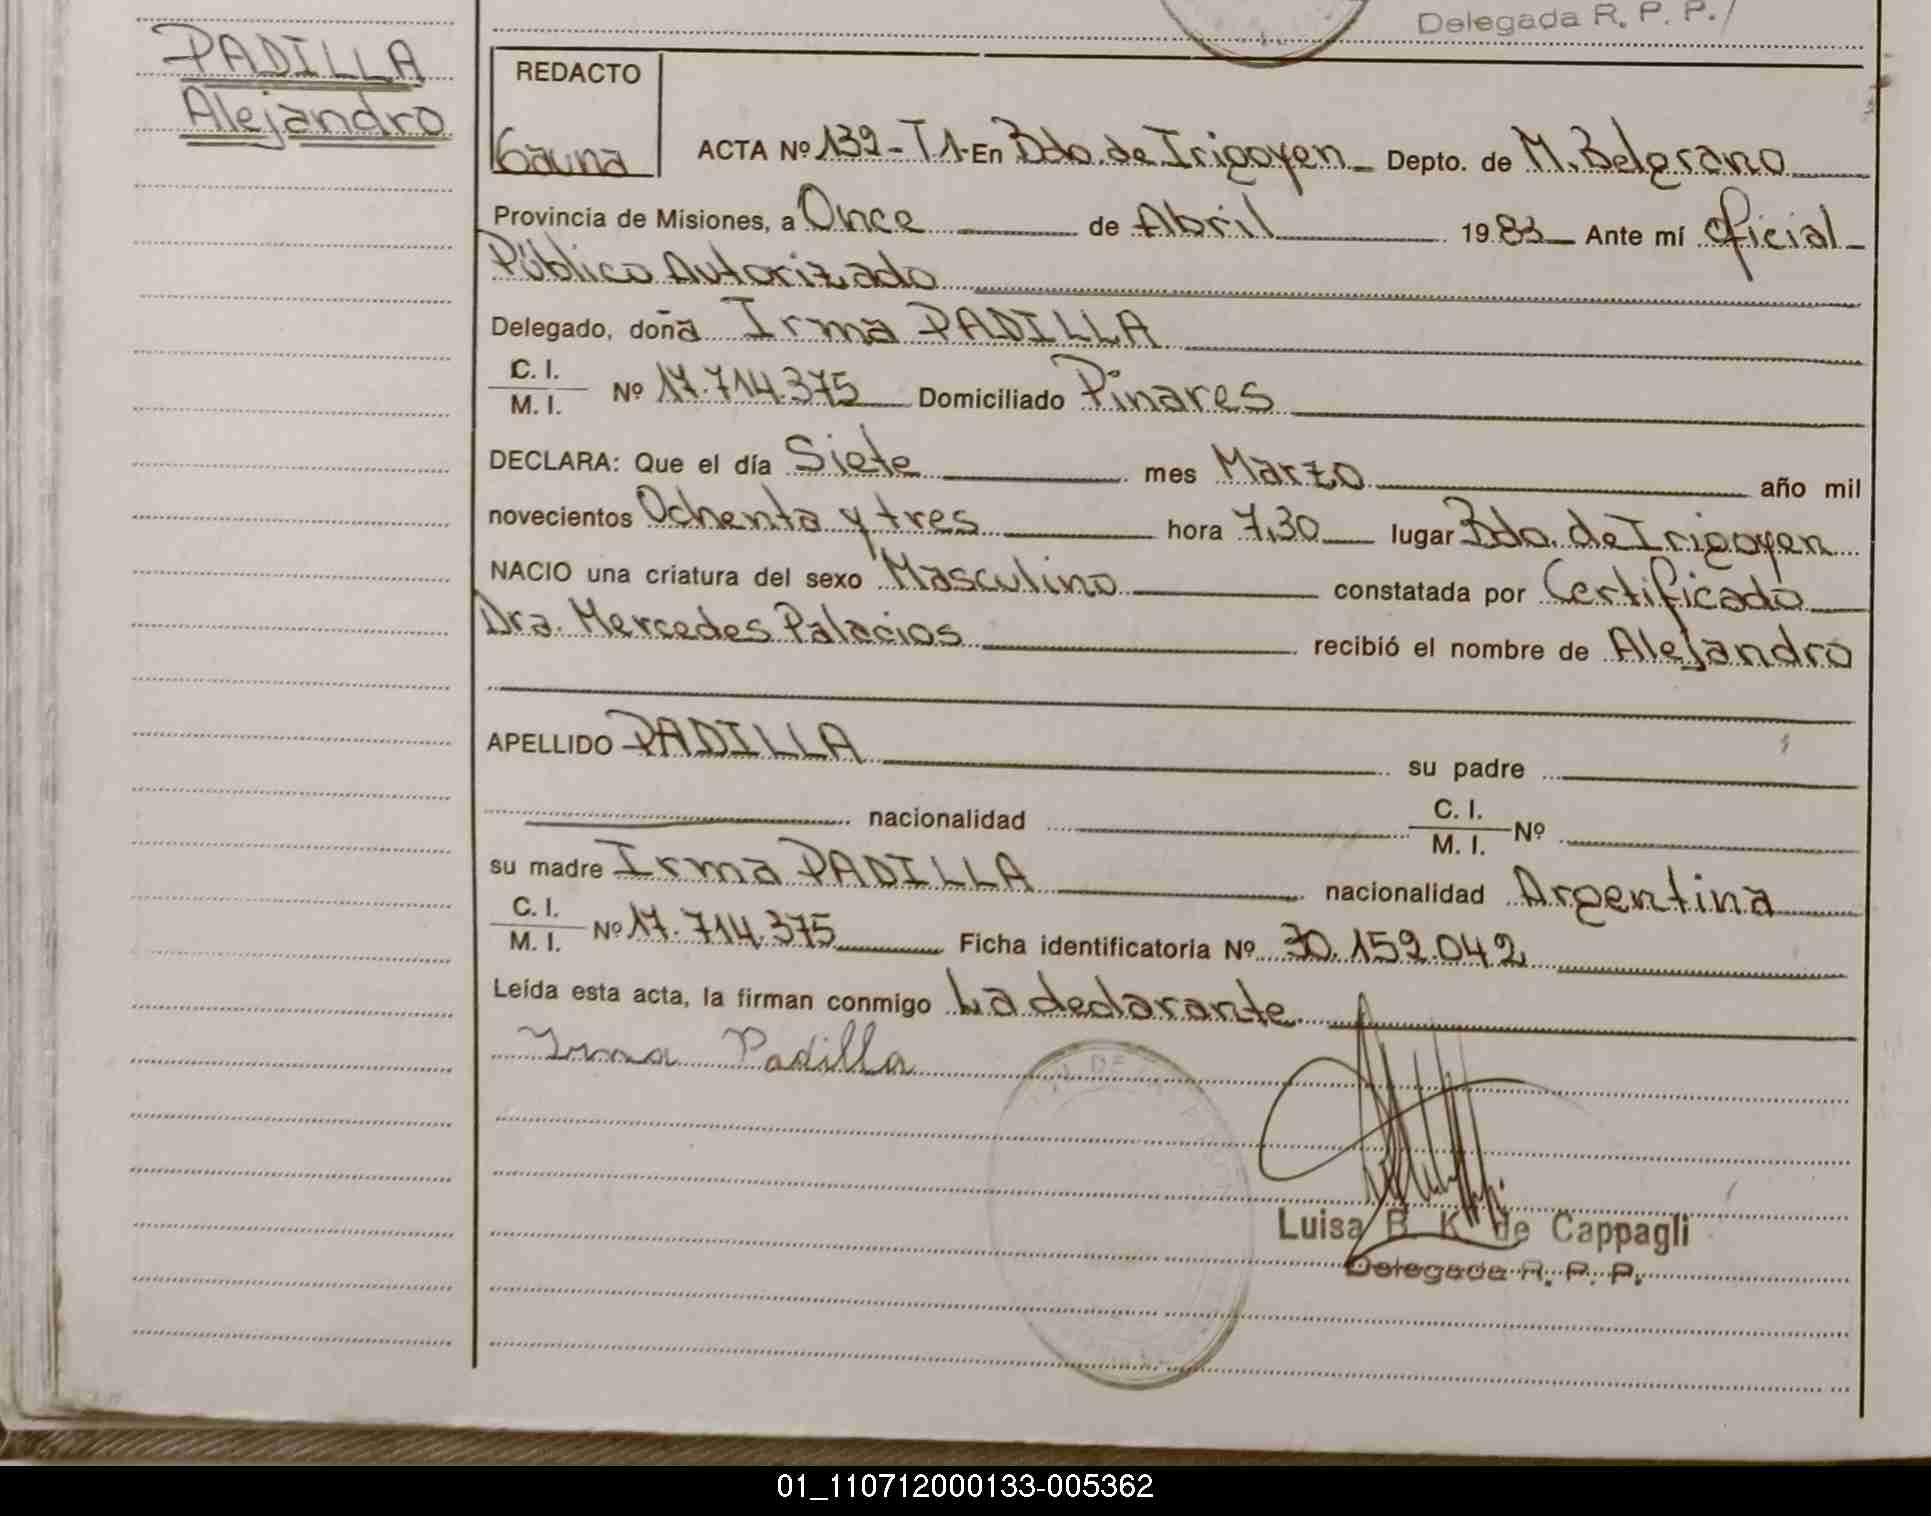 Delegada R. P. P.
PADILLA
Alejandro
REDACTO
Gauna
ACTA Nº 139-T1-En Bdo. de Irigoyen Depto. de M. Belgrano
Provincia de Misiones, a Once de Abril 1983 Ante mí Oficial
Público Autorizado
Delegado, doña Irma PADILLA
C. I.
M. I. Nº 17.714.375 Domiciliado Pinares
DECLARA: Que el día Siete mes Marzo año mil
novecientos Ochenta y tres hora 7,30 lugar Bdo. de Irigoyen
NACIO una criatura del sexo Masculino constatada por Certificado
Dra. Mercedes Palacios recibió el nombre de Alejandro
APELLIDO PADILLA su padre
nacionalidad C. I. M. I. Nº
su madre Irma PADILLA nacionalidad Argentina
C. I.
M. I. Nº 17.714.375 Ficha identificatoria Nº 30.159.042
Leída esta acta, la firman conmigo La declarante.
Irma Padilla
Luisa B. K. de Cappagli
Delegada R. P. P.
01_110712000133-005362